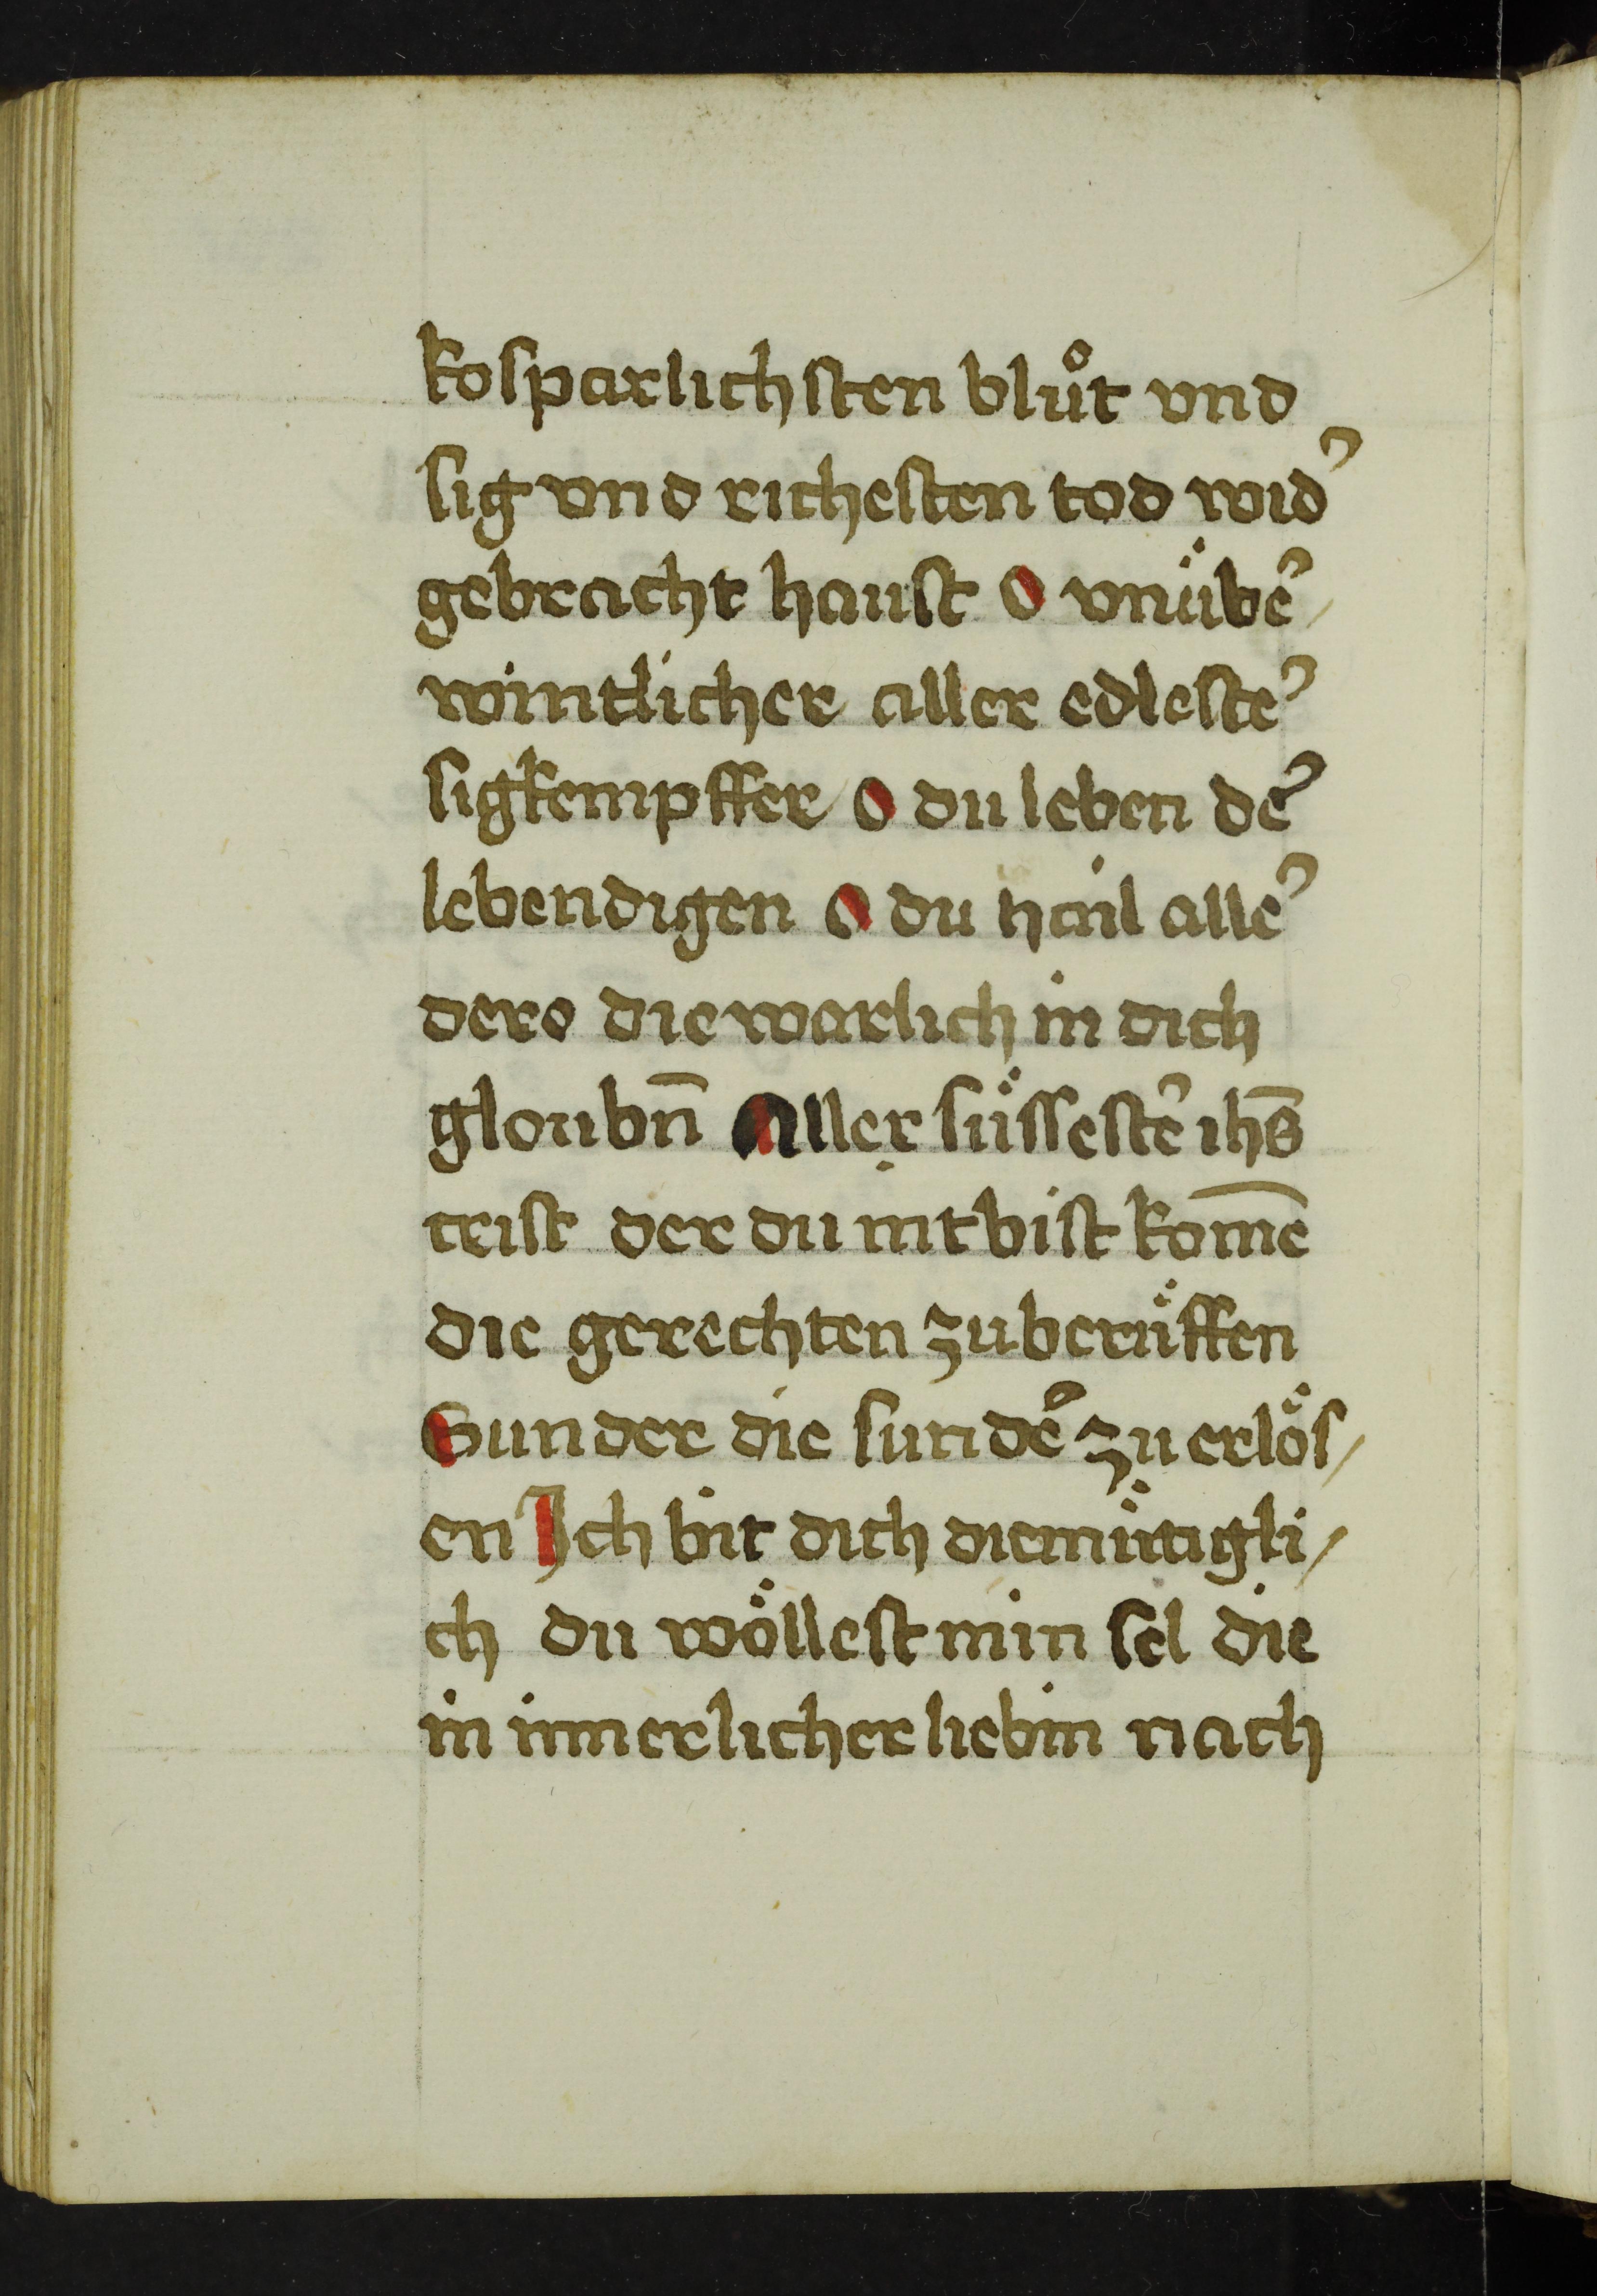 kosparlichsten blůt vnd
sig vnd richesten tod wid᾿
gebracht haust O vnübe᾿/
wintlicher aller edleste᾿
sigkempffer / O du leben de᾿
lebendigen O du hail alle᾿
dero die warlich in dich
gloubn̄ Aller süsseste᾿ ihs̄
crist der du nit bist kom̄e
die gerechten zu berüffen
Sunder die sunde᾿ zu erlös/
en Ich bit dich diemütigli/
ch du wöllest min sel die
in innerlicher liebin nach